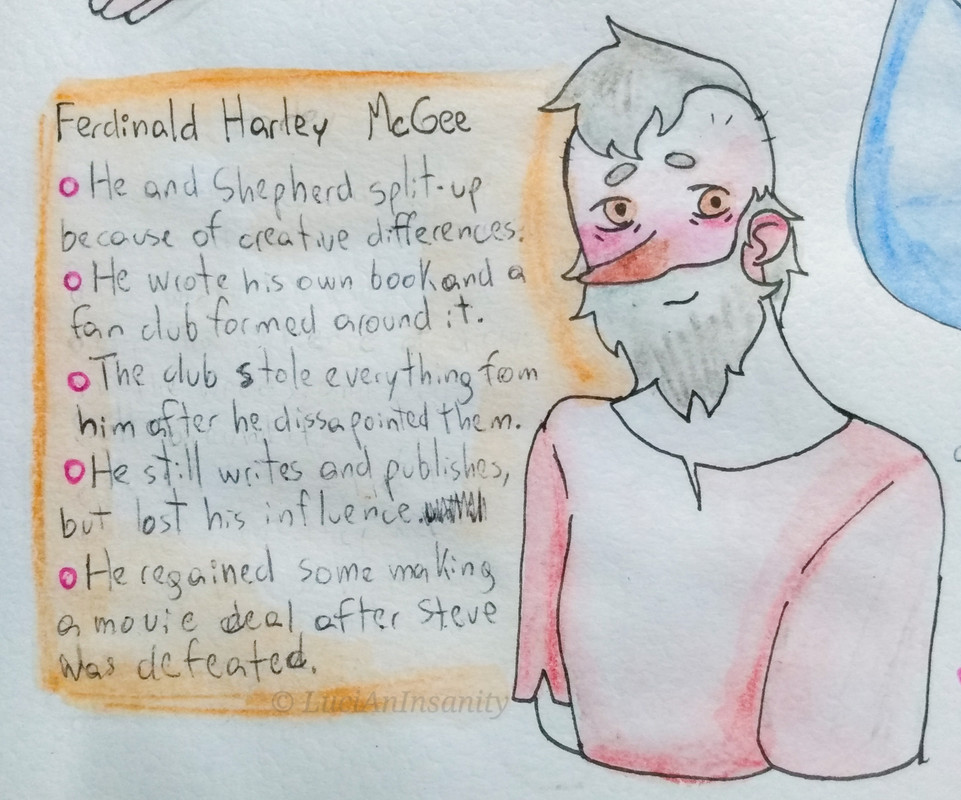 Ferdinald Harley McGee
He and Shepherd split-up
because of creative differences.
He wrote his own book and a
fan club formed around it.
The club stole everything fom
him after he dissapointed them.
He still writes and publishes,
but lost his influence.
He regained some making
a movie deal after Steve
was defeated.
© LuciAnInsanity